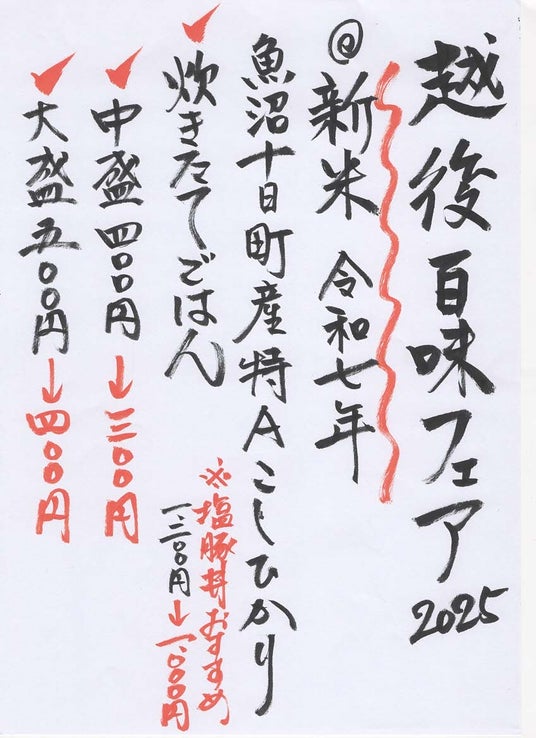 越後百味フェア2025
@新米 令和七年
魚沼十日町産特Aこしひかり
炊きたてごはん
※塩豚丼おすすめ
一、三〇〇円→一、〇〇〇円
中盛 四〇〇円→三〇〇円
大盛 五〇〇円→四〇〇円